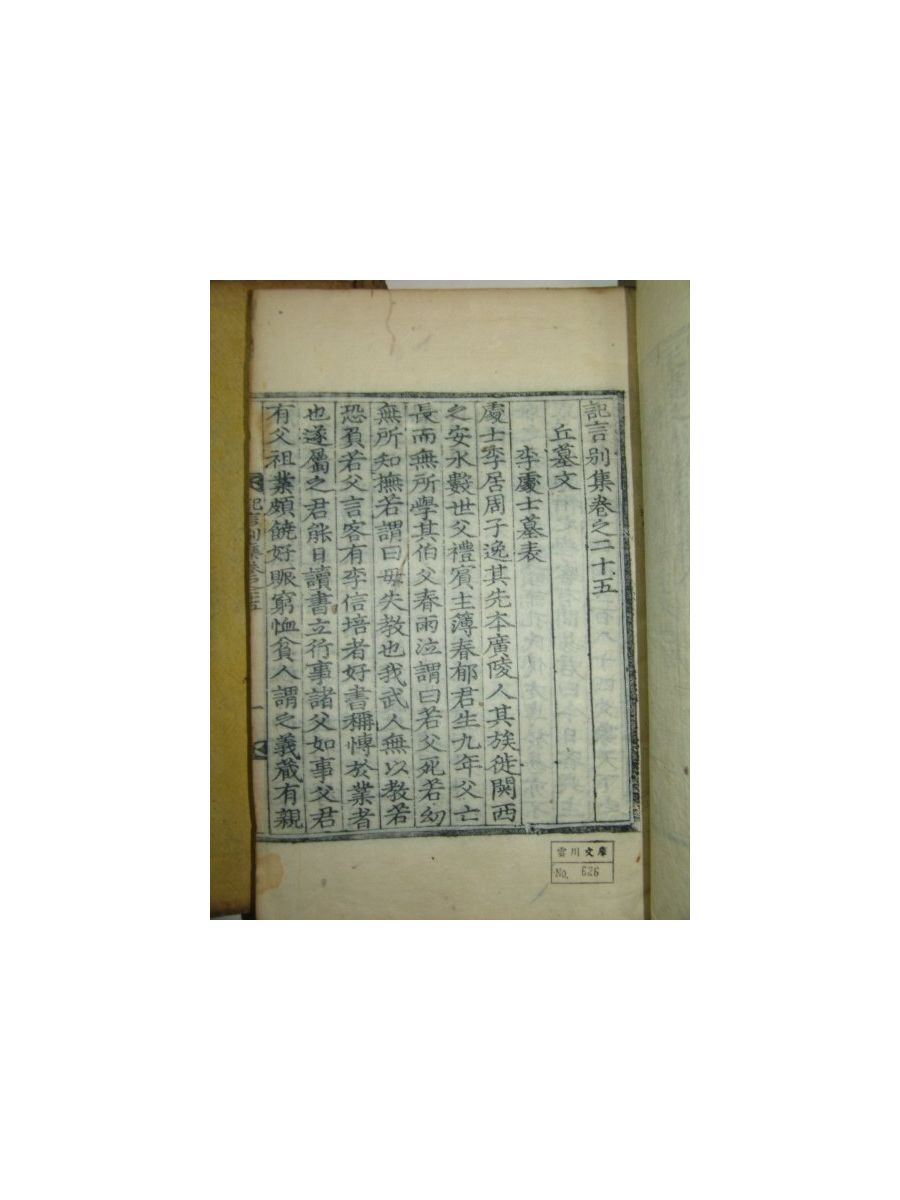 記言別集卷之二十五
丘墓文
李處士墓表
處士李居周子逸其先本廣陵人其族徙關西
之安水數世父禮賓主簿春郁君生九年父亡
長而無所學其伯父春雨泣謂曰若父死若幼
無所知撫若謂曰毋失教也我武人無以教若
恐負若父言客有李信培者好書稱慱於業者
也遂屬之君能日讀書立行事諸父如事父君
有父祖業頗饒好賑窮恤貧人謂之義蔵有親
記言別集卷之二十五
一
雲川文庫
No. 626